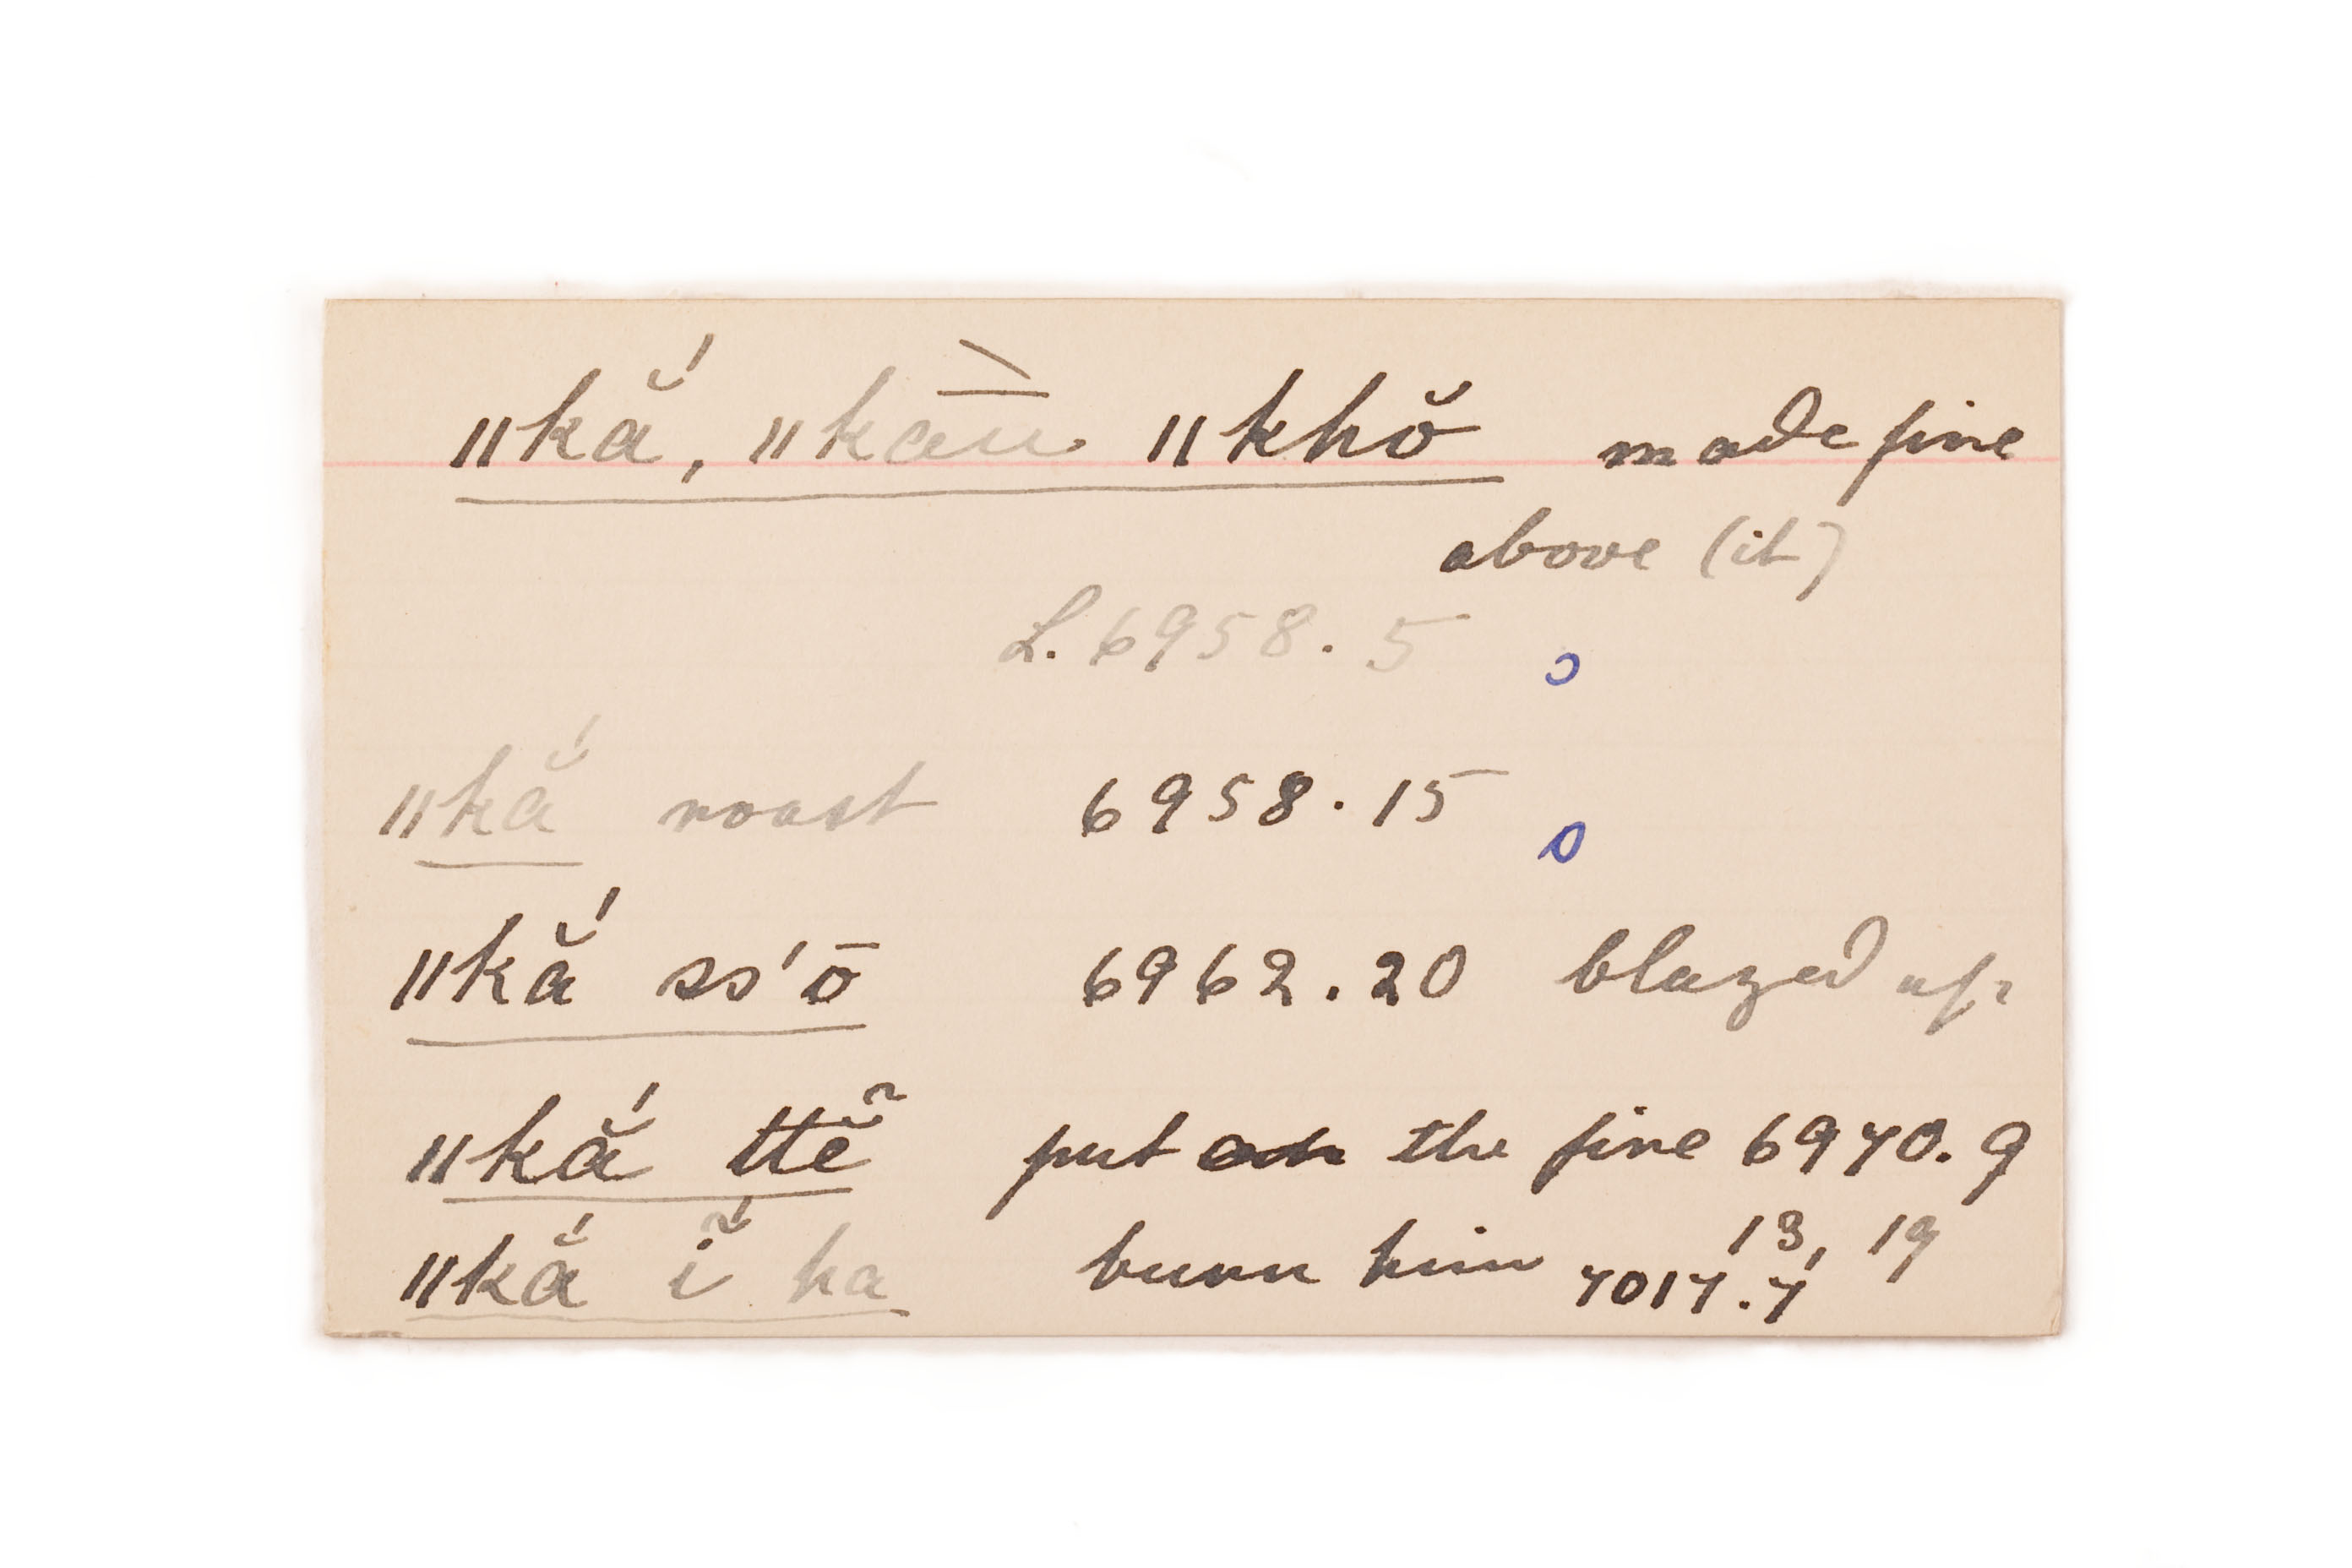 ǁkắ, ǁkau̅̀ ǁkhŏ made fire
above (it)
L. 6958. 5 o
ǁkắ roast 6958. 15 o
ǁkắ ss'ō 6962. 20 blazed up
ǁkắ ttĕ̃ put on the fire 6970. 9
13, 19
ǁkắ ĭ̃́ ha burn him 7017. 7